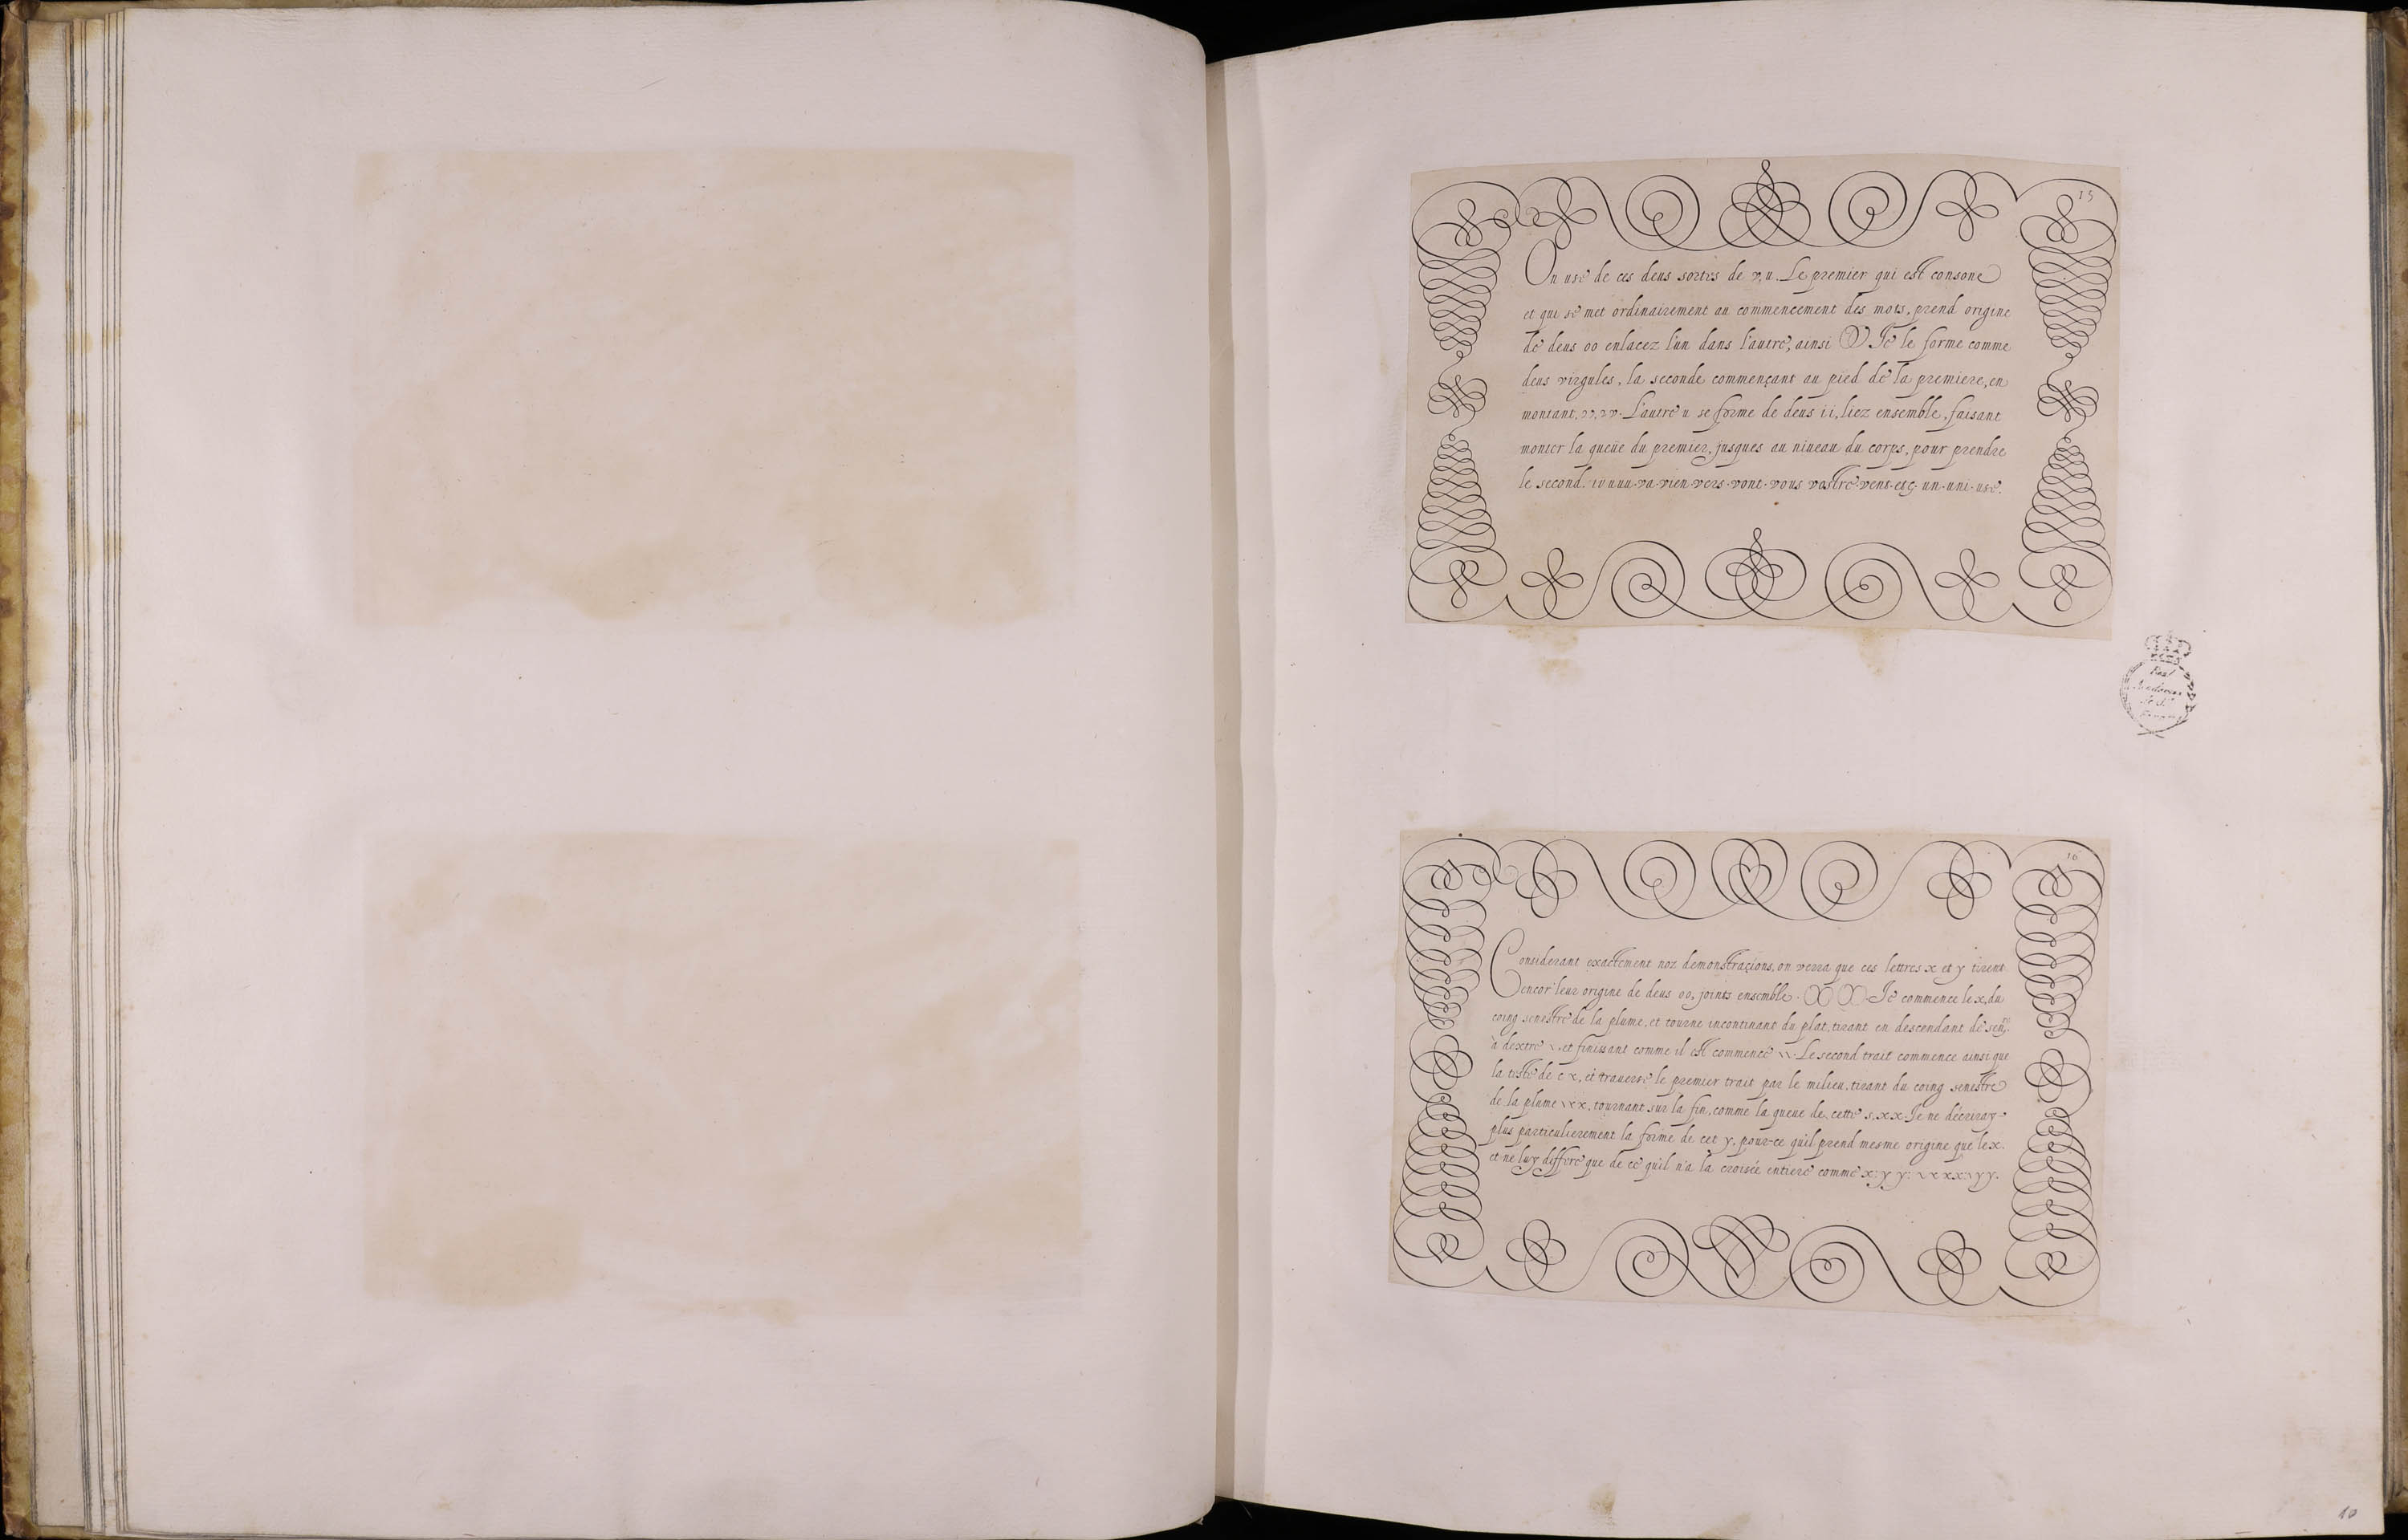 15
On use de ces deus sortes de v, u. Le premier qui est consone
et qui se met ordinairement au commencement des mots, prend origine
de deus oo enlacez l'un dans l'autre, ainsi Je le forme comme
deus virgules, la seconde commençant au pied de la premiere, en
montant. L'autre u se forme de deus i i, liez ensemble, faisant
monter la queüe du premier, jusques au niueau du corps, pour prendre
le second. va vien vers vont vous vostre vent etç un uni use.
Real
16
Considerant exactement noz demonstraçions, on verra que ces lettres x et y tirent
encor' leur origine de deus oo, joints ensemble. Je commence le x, du
coing senestre de la plume, et tourne incontinant du plat, tirant en descendant de
à dextre et finissant comme il est commencé Le second trait commence ainsi que
la teste de c x, et trauerse le premier trait par le milieu, tirant du coing senestre
de la plume tournant sur la fin, comme la queue de cette s, x x. Je ne décriray
plus particulierement la forme de cet y, pour-ce qu'il prend mesme origine que le x.
et ne luy differe que de ce qu'il n'a la croisée entiere comme x y y
10